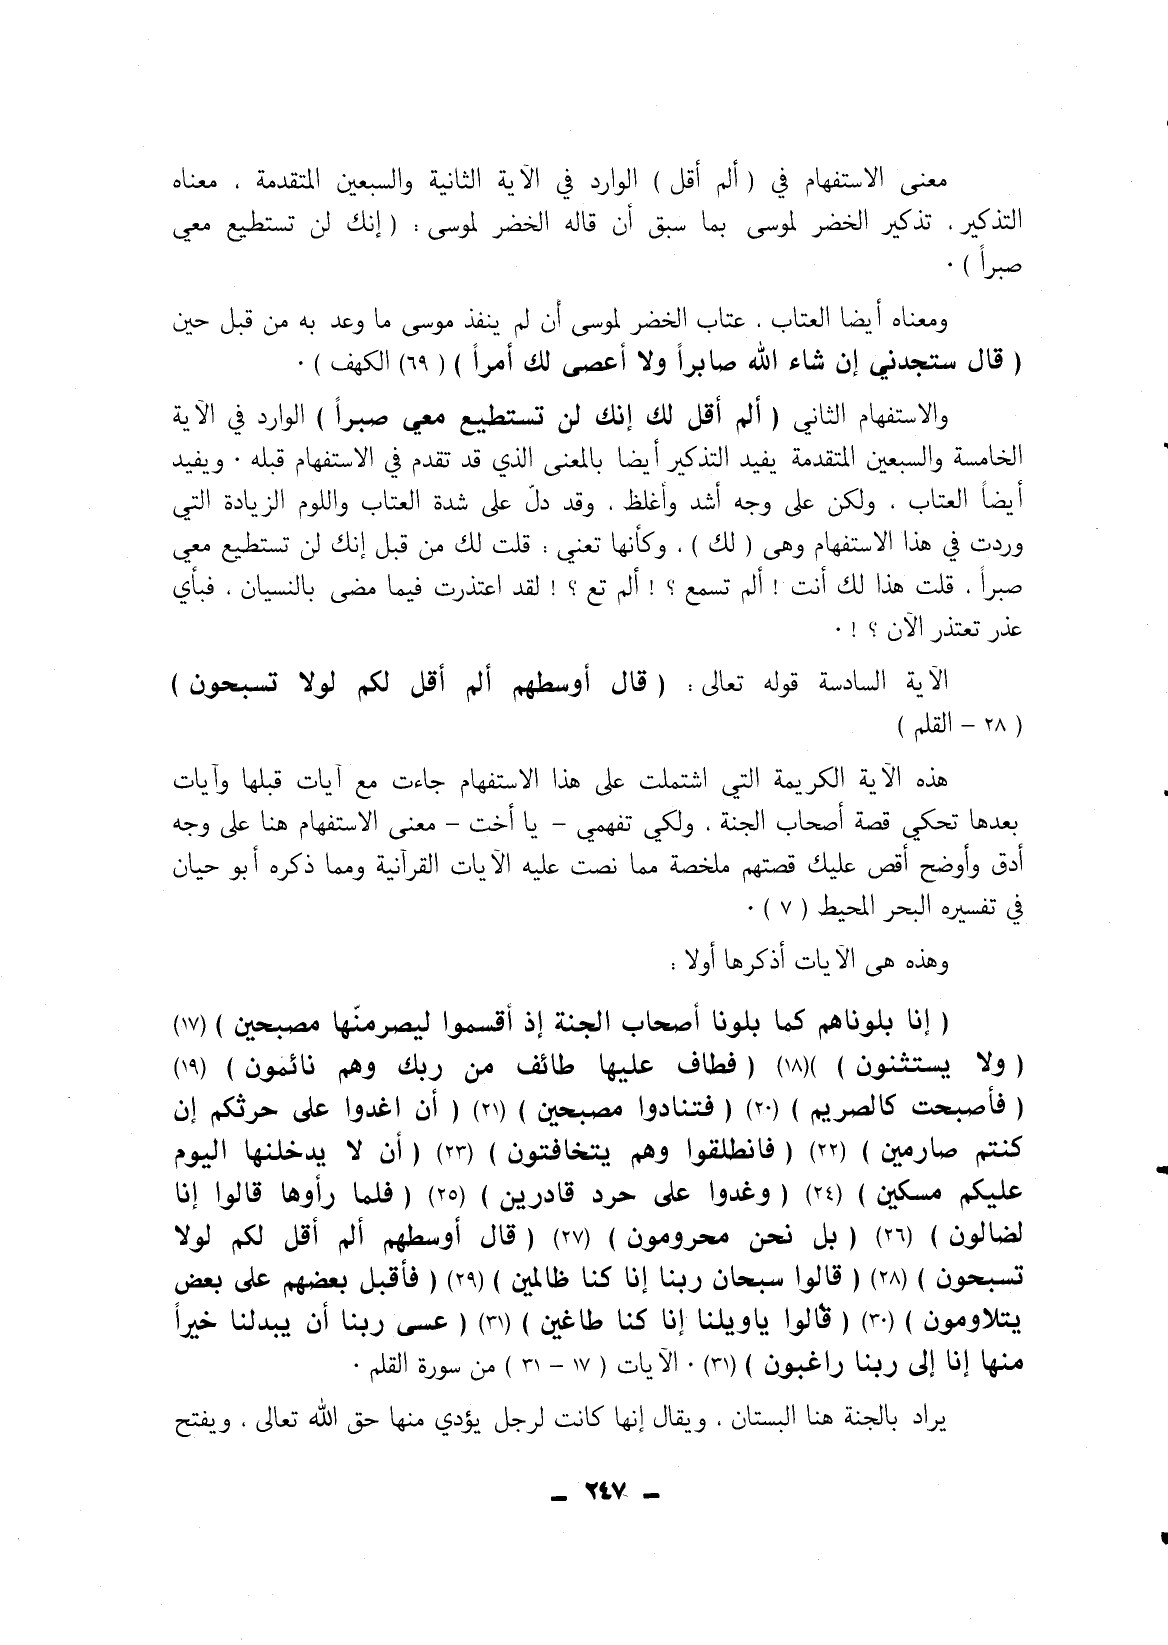 معنى الاستفهام في ( ألم أقل ) الوارد في الآية الثانية والسبعين المتقدمة ، معناه
التذكير ، تذكير الخضر لموسى بما سبق أن قاله الخضر لموسى : ( إنك لن تستطيع معي
صبراً ) .
ومعناه أيضا العتاب ، عتاب الخضر لموسى أن لم ينفذ موسى ما وعد به من قبل حين
( قال ستجدني إن شاء الله صابراً ولا أعصى لك أمراً ) ( ٦٩) الكهف ) .
والاستفهام الثاني ( ألم أقل لك إنك لن تستطيع معي صبراً ) الوارد في الآية
الخامسة والسبعين المتقدمة يفيد التذكير أيضا بالمعنى الذي قد تقدم في الاستفهام قبله . ويفيد
أيضاً العتاب ، ولكن على وجه أشد وأغلظ ، وقد دلّ على شدة العتاب واللوم الزيادة التي
وردت في هذا الاستفهام وهى ( لك ) ، وكأنها تعني : قلت لك من قبل إنك لن تستطيع معي
صبراً ، قلت هذا لك أنت ! ألم تسمع ؟ ! ألم تع ؟ ! لقد اعتذرت فيما مضى بالنسيان ، فبأي
عذر تعتذر الآن ؟ ! .
الآية السادسة قوله تعالى : ( قال أوسطهم ألم أقل لكم لولا تسبحون )
( ٢٨ – القلم )
هذه الآية الكريمة التي اشتملت على هذا الاستفهام جاءت مع آيات قبلها وآيات
بعدها تحكي قصة أصحاب الجنة ، ولكي تفهمي – يا أخت – معنى الاستفهام هنا على وجه
أدق وأوضح أقص عليك قصتهم ملخصة مما نصت عليه الآيات القرآنية ومما ذكره أبو حيان
في تفسيره البحر المحيط ( ٧ ) .
وهذه هى الآيات أذكرها أولا :
( إنا بلوناهم كما بلونا أصحاب الجنة إذ أقسموا ليصرمنّها مصبحين ) (١٧)
( ولا يستثنون ) )(١٨) ( فطاف عليها طائف من ربك وهم نائمون ) (١٩)
( فأصبحت كالصريم ) (٢٠) ( فتنادوا مصبحين ) (٢١) ( أن اغدوا على حرثكم إن
كنتم صارمين ) (٢٢) ( فانطلقوا وهم يتخافتون ) (٢٣) ( أن لا يدخلنها اليوم
عليكم مسكين ) (٢٤) ( وغدوا على حرد قادرين ) (٢٥) ( فلما رأوها قالوا إنا
لضالون ) (٢٦) ( بل نحن محرومون ) (٢٧) ( قال أوسطهم ألم أقل لكم لولا
تسبحون ) (٢٨) ( قالوا سبحان ربنا إنا كنا ظالمين ) (٢٩) ( فأقبل بعضهم على بعض
يتلاومون ) (٣٠) ( قالوا ياويلنا إنا كنا طاغين ) (٣١) ( عسى ربنا أن يبدلنا خيراً
منها إنا إلى ربنا راغبون ) (٣١) . الآيات ( ١٧ – ٣١ ) من سورة القلم .
يراد بالجنة هنا البستان ، ويقال إنها كانت لرجل يؤدي منها حق الله تعالى ، ويفتح
– ٢٤٧ –